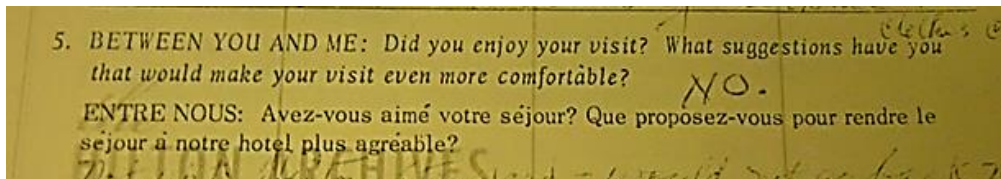 5. BETWEEN YOU AND ME: Did you enjoy your visit? What suggestions have you
that would make your visit even more comfortable?
NO.
ENTRE NOUS: Avez-vous aimé votre séjour? Que proposez-vous pour rendre le
séjour à notre hotel plus agréable?
ARCHIVES